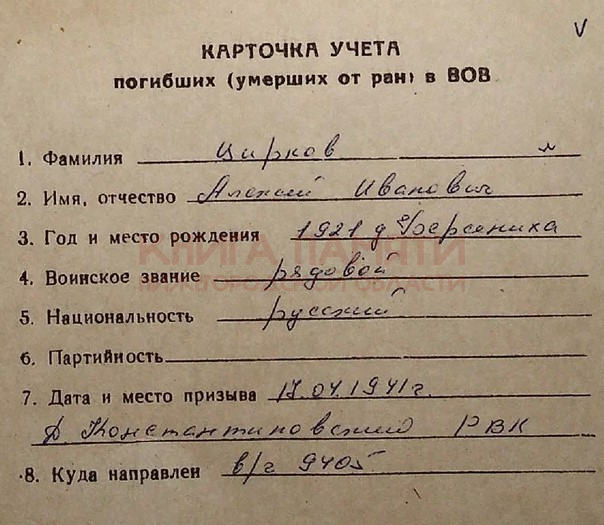 V
КАРТОЧКА УЧЕТА
погибших (умерших от ран) в ВОВ
1. Фамилия Цирков
2. Имя, отчество Алексей Иванович
3. Год и место рождения 1921 д
КНИГА ПАМЯТИ
4. Воинское звание рядовой
НИЖЕГОРОДСКОЙ ОБЛАСТИ
5. Национальность русский
6. Партийность
7. Дата и место призыва 17.04.1941г.
Д. Константиновский РВК
8. Куда направлен в/г 9405